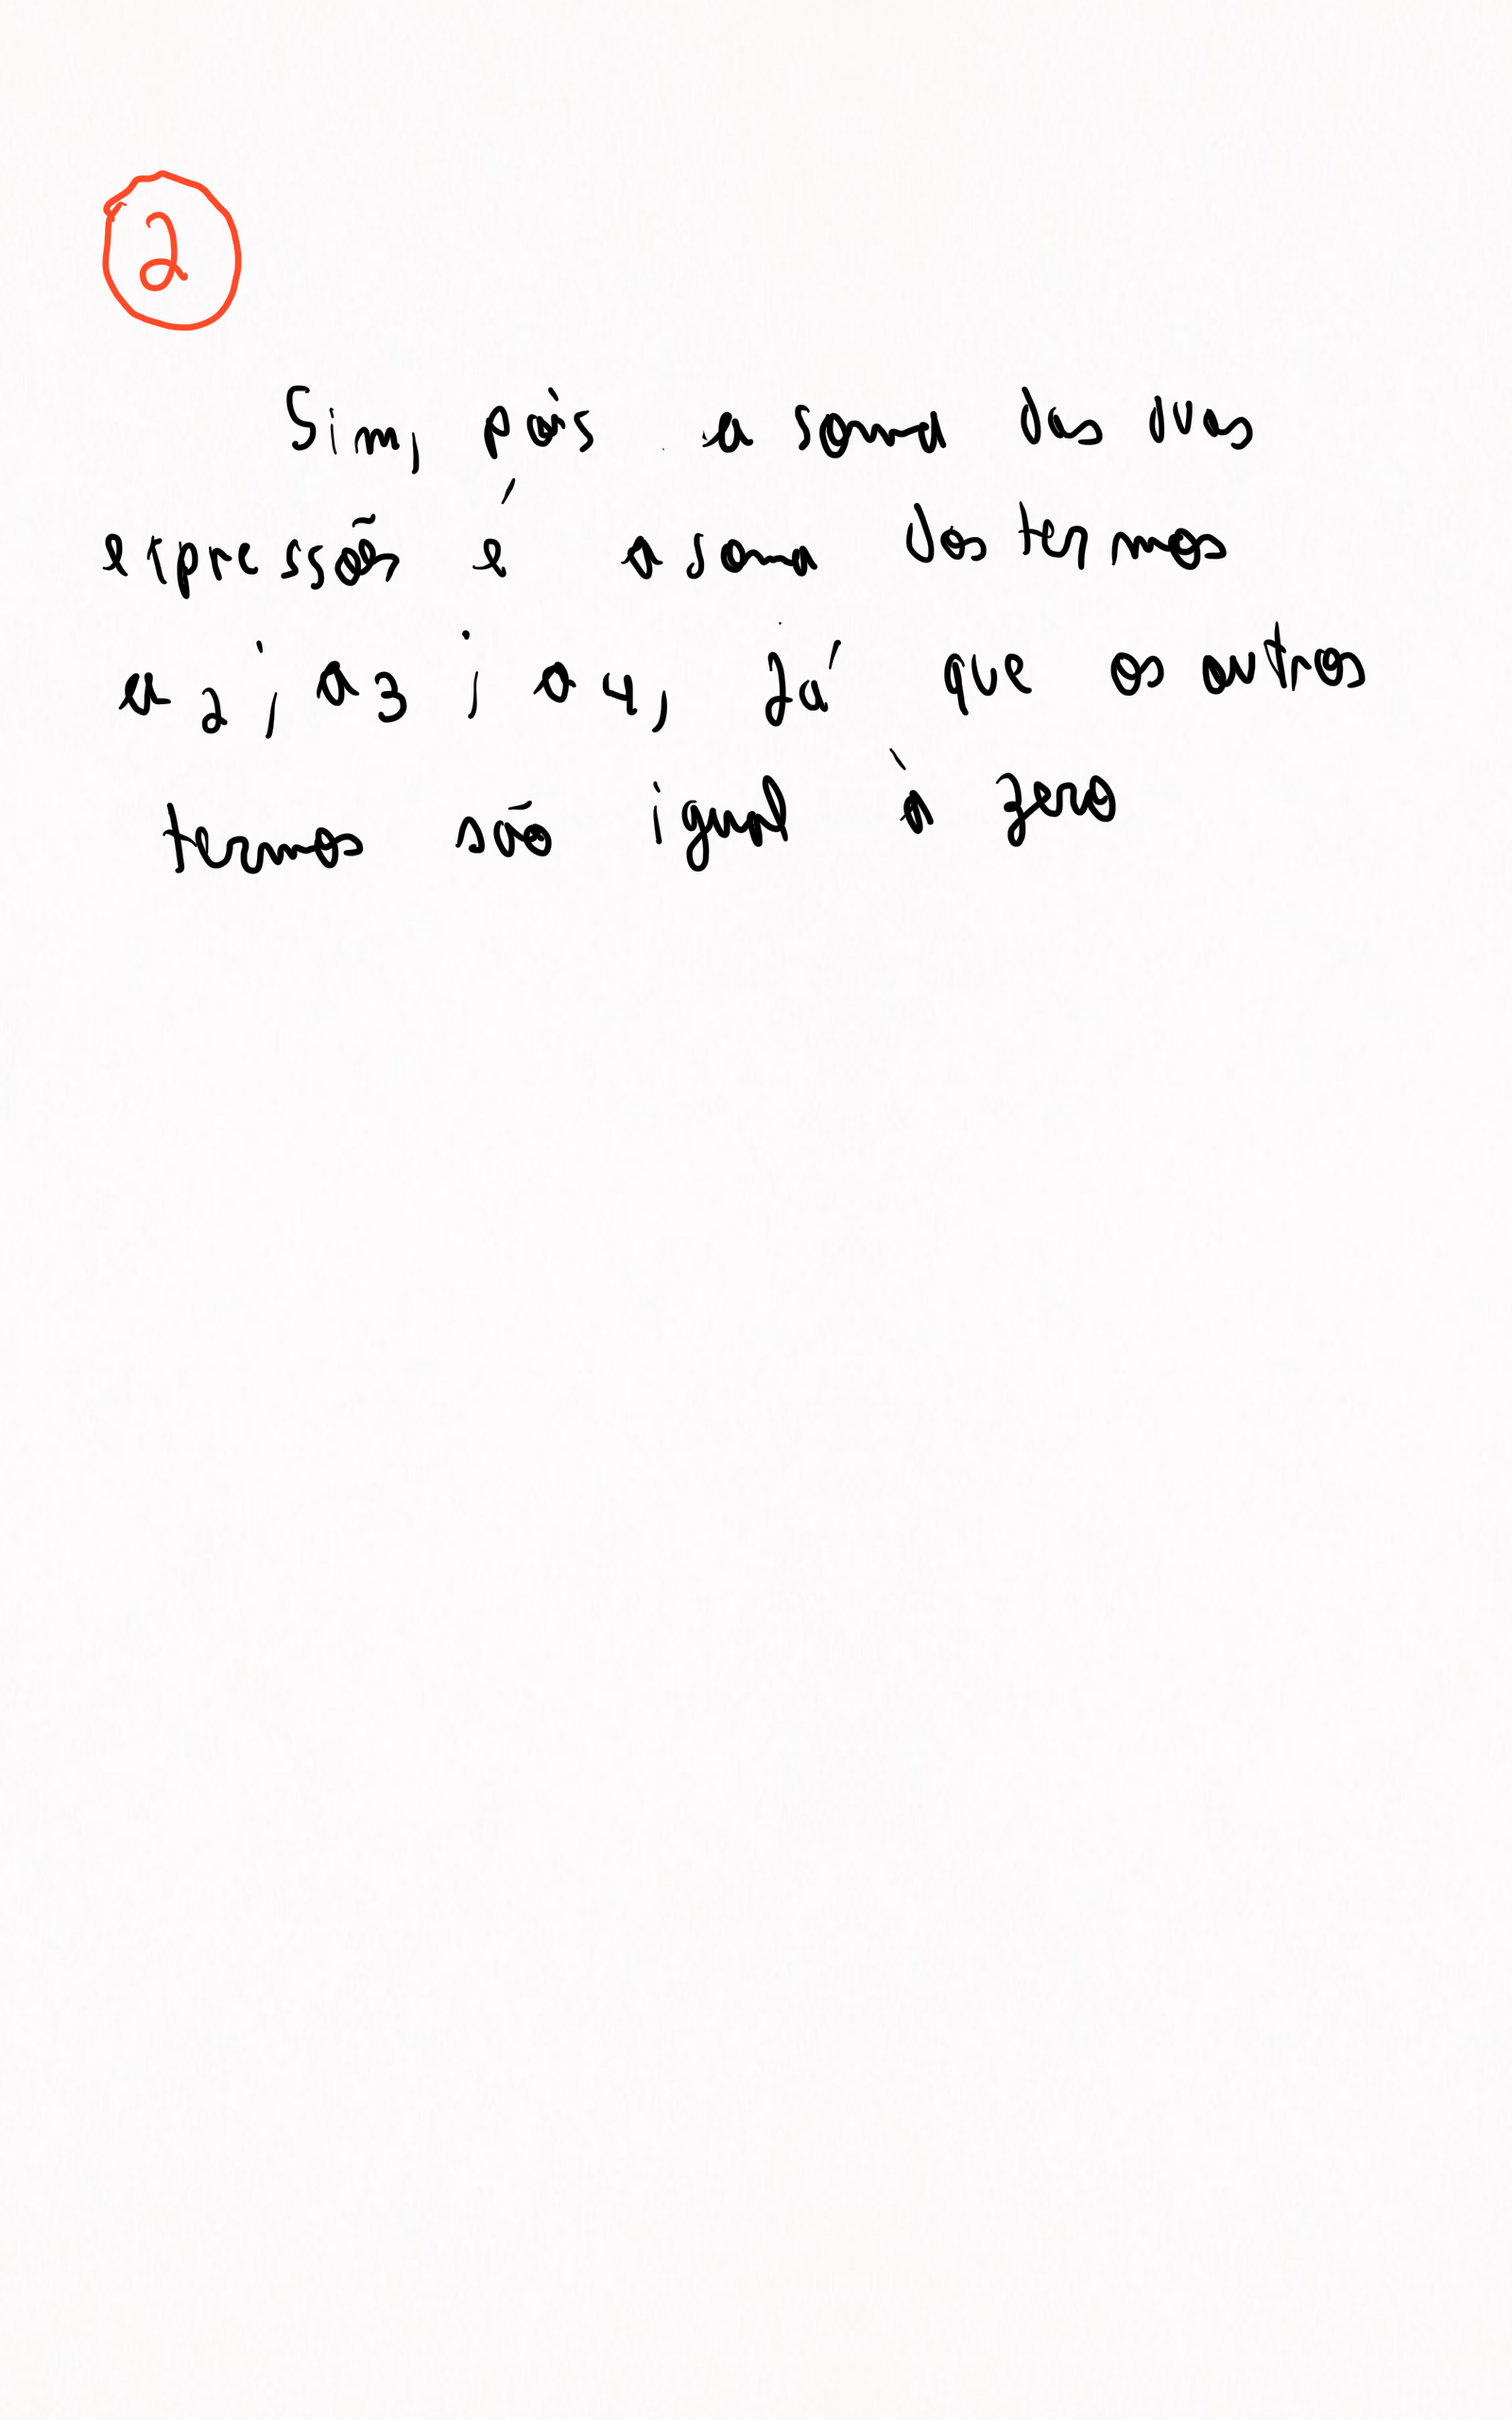 2
Sim, pois a soma das duas
expressões é a soma dos termos
a2; a3; a4, já que os outros
termos são igual à zero